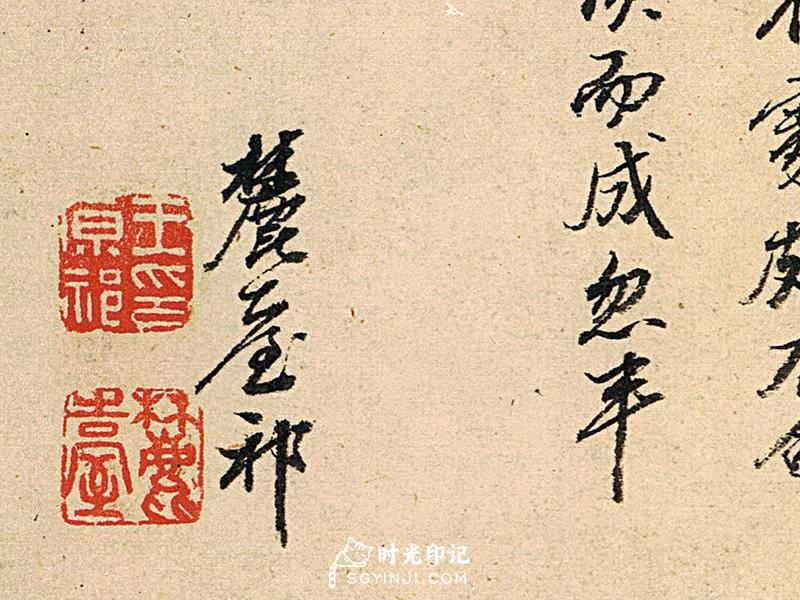 而成忽半
麓臺祁
王印原祁
麓臺
时光印记
SGYINJI.COM